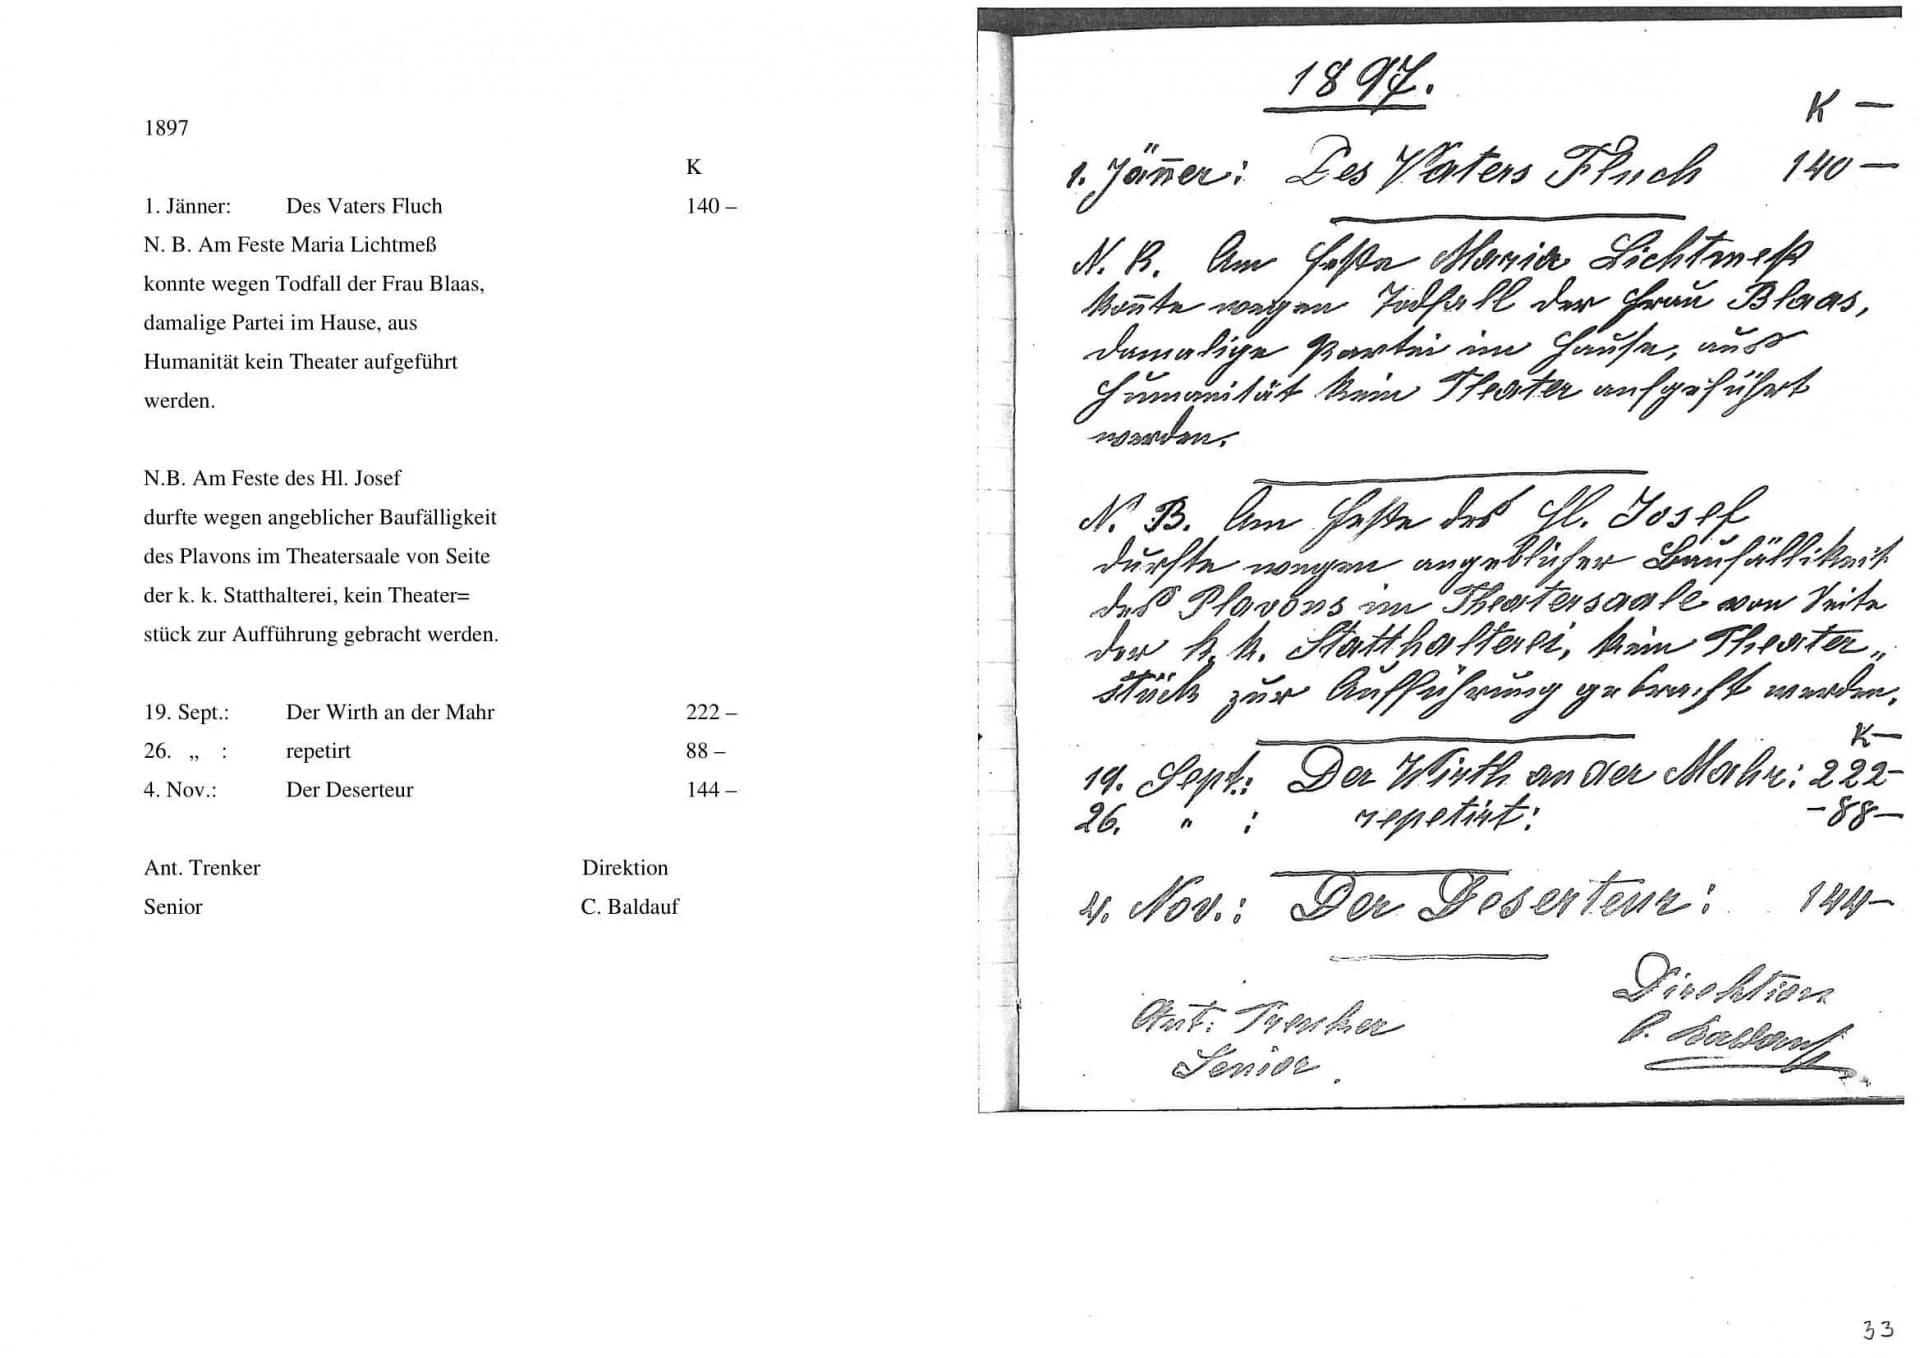 1897
K
1. Jänner: Des Vaters Fluch 140 –
N. B. Am Feste Maria Lichtmeß
konnte wegen Todfall der Frau Blaas,
damalige Partei im Hause, aus
Humanität kein Theater aufgeführt
werden.
N.B. Am Feste des Hl. Josef
durfte wegen angeblicher Baufälligkeit
des Plavons im Theatersaale von Seite
der k. k. Statthalterei, kein Theater=
stück zur Aufführung gebracht werden.
19. Sept.: Der Wirth an der Mahr 222 –
26. „ : repetirt 88 –
4. Nov.: Der Deserteur 144 –
Ant. Trenker Direktion
Senior C. Baldauf
1897.
K —
1. Jän̄er: Des Vaters Fluch 140 —
N. B. Am Feste Maria Lichtmeß
kon̄te wegen Todfall der Frau Blaas,
damalige Partei im Hause, aus
Humanität kein Theater aufgeführt
werden.
N. B. Am Feste des Hl. Josef
durfte wegen angeblicher Baufällikeit
des Plavons im Theatersaale von Seite
der k. k. Statthalterei, kein Theater„
stück zur Aufführung gebracht werden.
K —
19. Sept.: Der Wirth an der Mahr: 222 –
26. " : repetirt: – 88 –
4. Nov.: Der Deserteur: 144 –
Direktion
Ant: Trenker C. Baldauf
Senior.
33